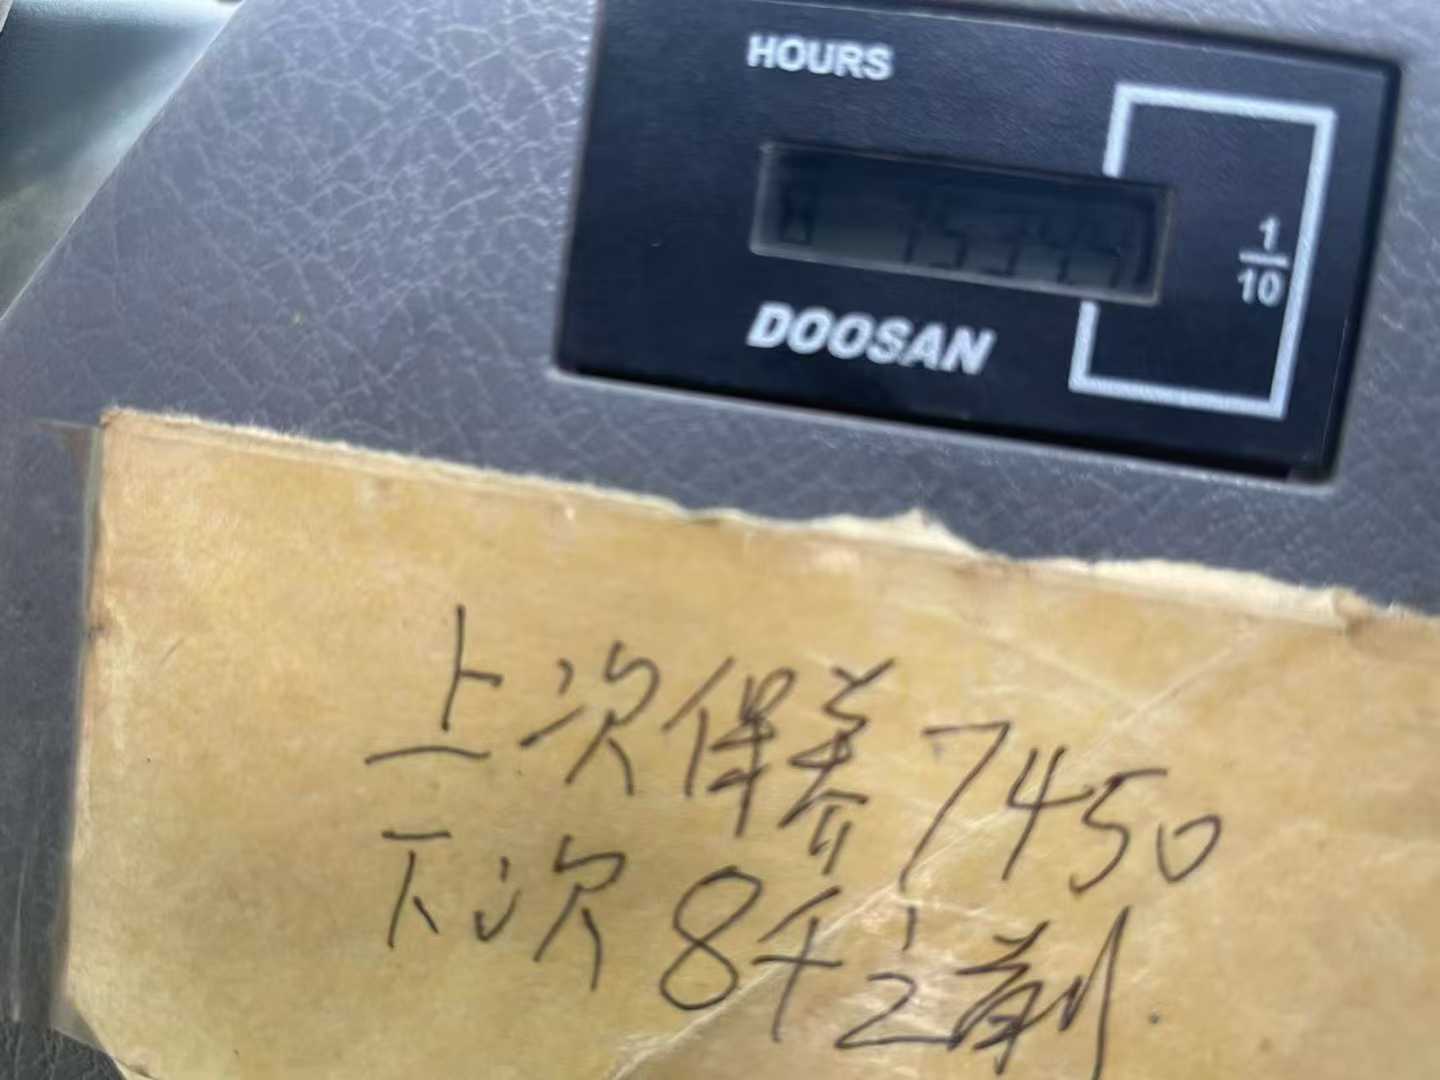 HOURS
1
10
DOOSAN
上次保养7450
下次8千之前.